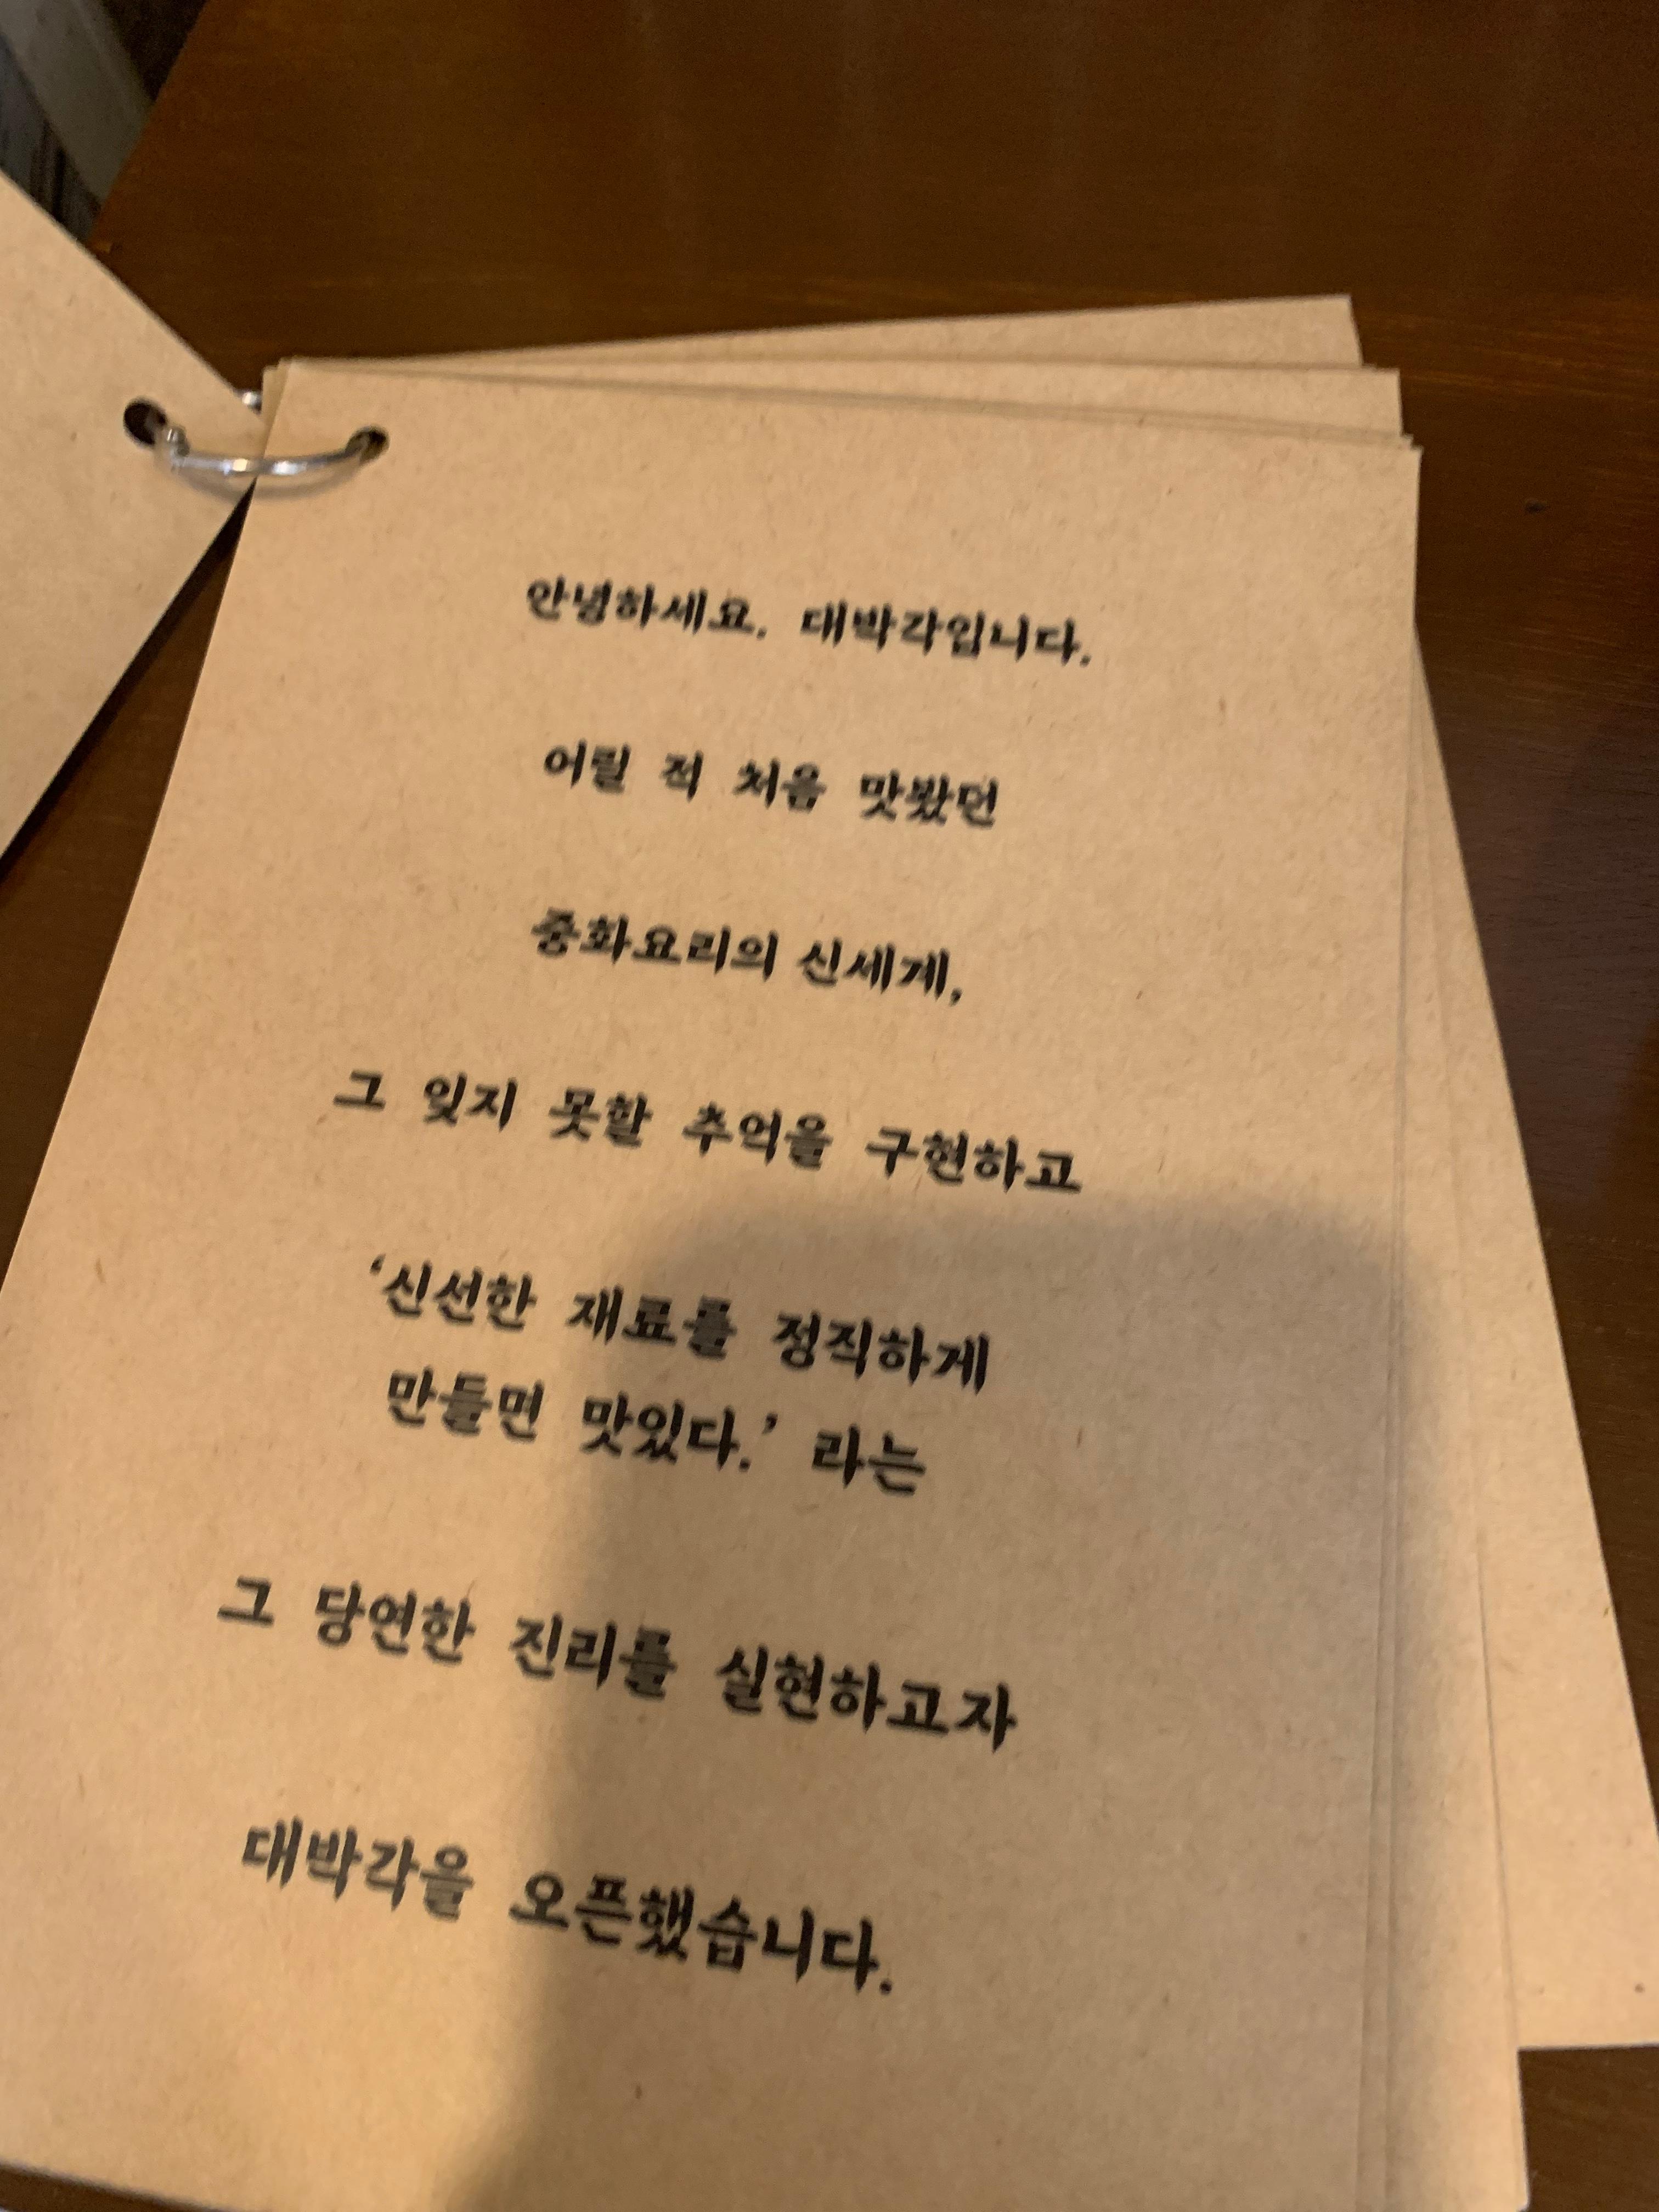 안녕하세요. 대박각입니다.
어릴 적 처음 맛봤던
중화요리의 신세계,
그 잊지 못할 추억을 구현하고
‘신선한 재료를 정직하게
만들면 맛있다.’ 라는
그 당연한 진리를 실현하고자
대박각을 오픈했습니다.